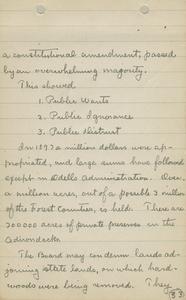 a constitutional amendment, passed
by an overwhelming majority.
This showed
1. Public Wants
2. Public Ignorance
3. Public Distrust
In 1897 a million dollars were ap-
propriated, and large sums have followed
except in Odells Administration. Over
a million acres, out of a possible 3 million
of the Forest Counties, is held. There are
700000 acres of private preserves in the
Adirondacks
The Board may condemn lands ad-
joining state lands, on which hard-
woods were being removed. They